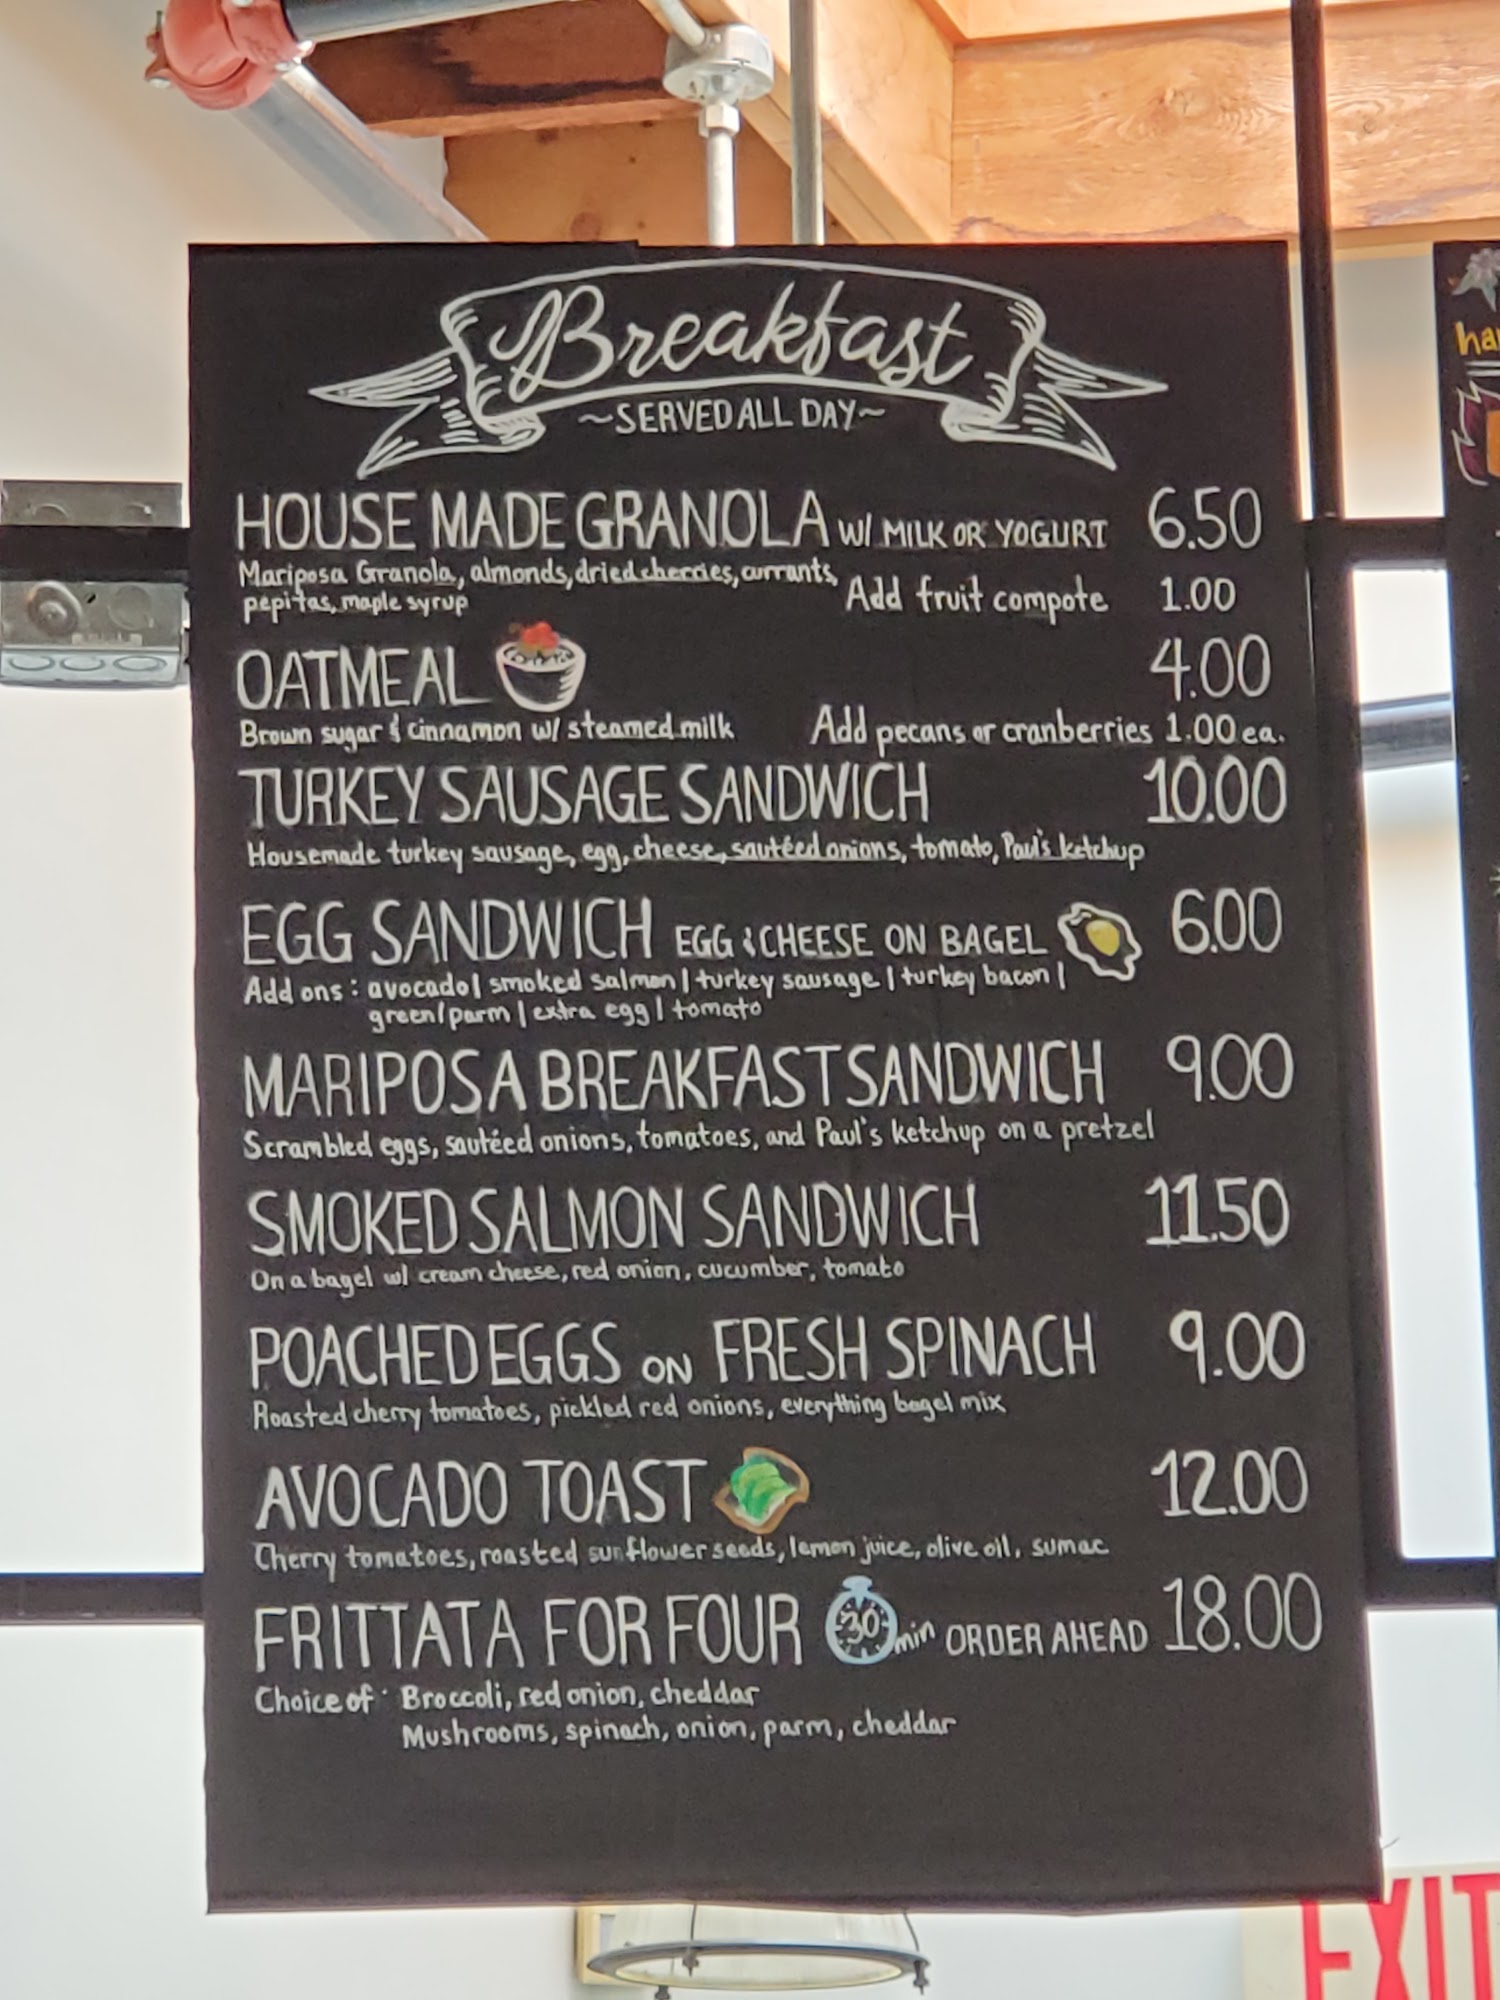 Breakfast
~SERVED ALL DAY~
HOUSE MADE GRANOLA W/ MILK OR YOGURT 6.50
Mariposa Granola, almonds, dried cherries, currants,
pepitas, maple syrup
Add fruit compote 1.00
OATMEAL 4.00
Brown sugar & cinnamon w/ steamed milk Add pecans or cranberries 1.00 ea.
TURKEY SAUSAGE SANDWICH 10.00
Housemade turkey sausage, egg, cheese, sautéed onions, tomato, Paul's ketchup
EGG SANDWICH EGG & CHEESE ON BAGEL 6.00
Add ons: avocado | smoked salmon | turkey sausage | turkey bacon |
green/parm | extra egg | tomato
MARIPOSA BREAKFAST SANDWICH 9.00
Scrambled eggs, sautéed onions, tomatoes, and Paul's ketchup on a pretzel
SMOKED SALMON SANDWICH 11.50
On a bagel w/ cream cheese, red onion, cucumber, tomato
POACHED EGGS ON FRESH SPINACH 9.00
Roasted cherry tomatoes, pickled red onions, everything bagel mix
AVOCADO TOAST 12.00
Cherry tomatoes, roasted sunflower seeds, lemon juice, olive oil, sumac
FRITTATA FOR FOUR 30 min ORDER AHEAD 18.00
Choice of: Broccoli, red onion, cheddar
Mushrooms, spinach, onion, parm, cheddar
ha
EXIT